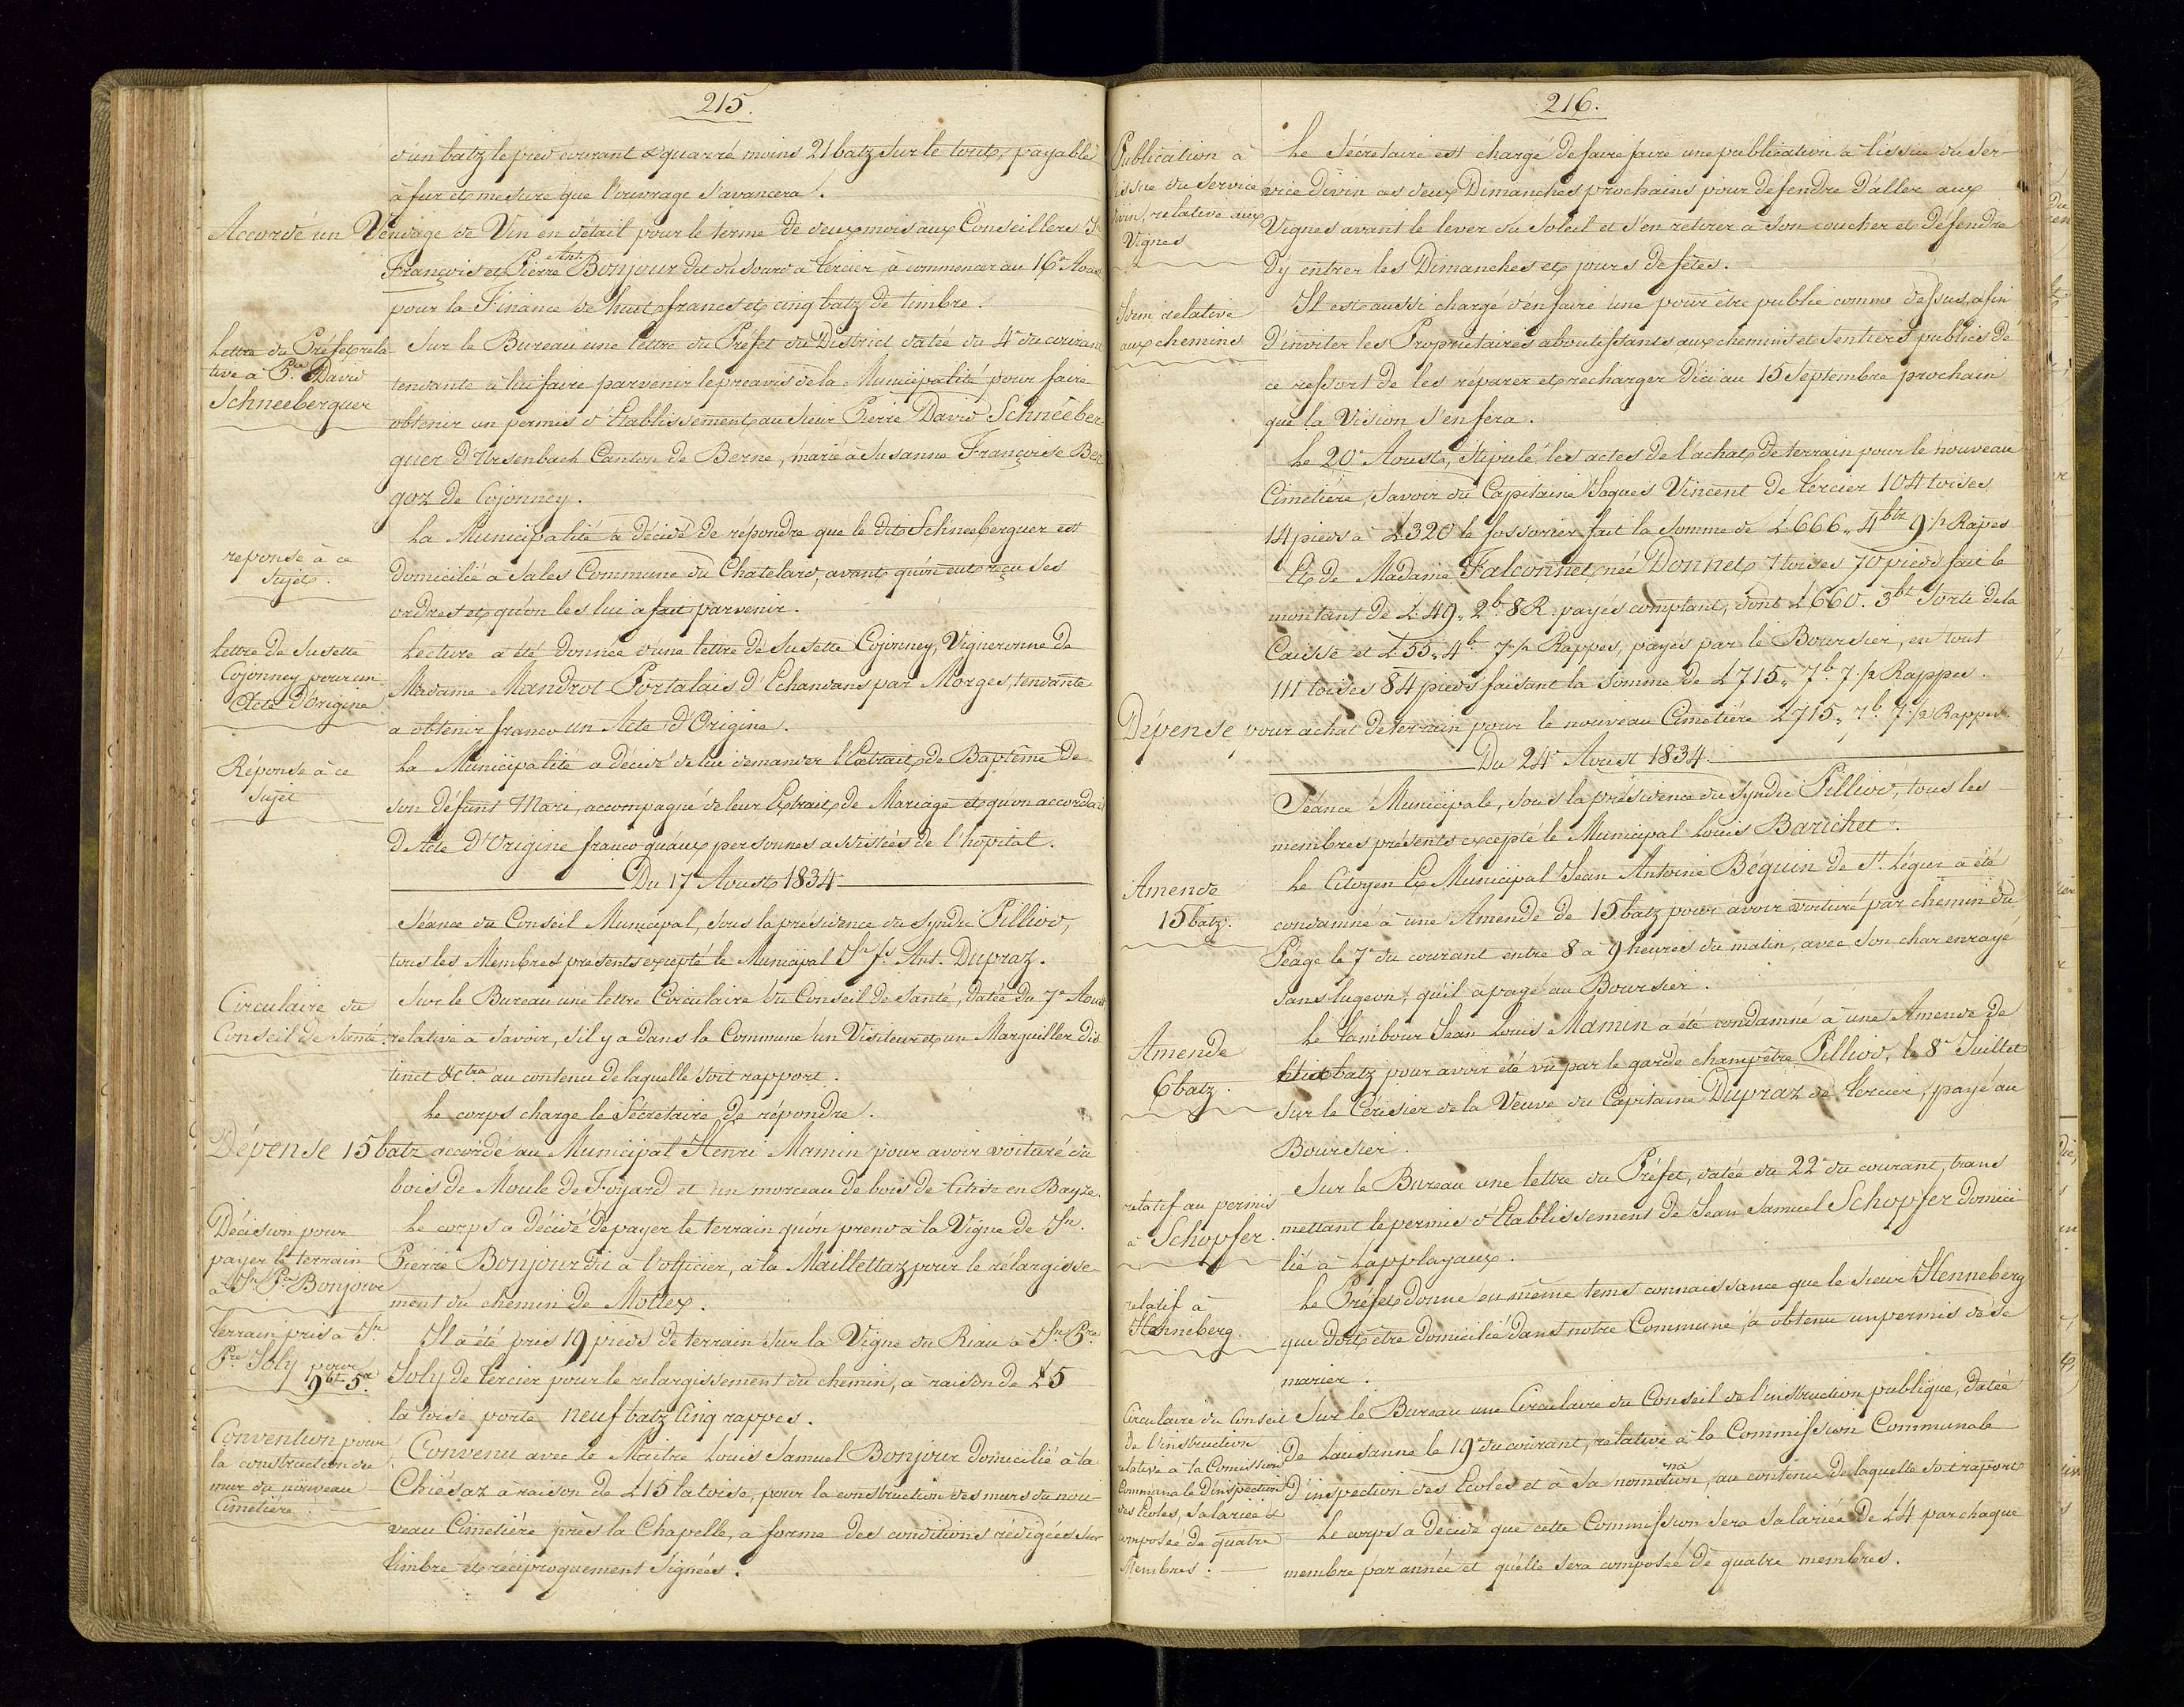 215.
d'un batz le pied courant & quarré moins 21 batz sur le tout, payable
à fur et mesure que l'ouvrage s'avancera.
Accordé un Vendage de Vin en détail pour le terme de deux mois aux Conseillers Jn
François et Pierre Ant. Bonjour dit du sourd à Tercier, à commencer au 16e Aoust
pour la Finance de huit francs et cinq batz de timbre.
Lettre du Préfet rela-
tive à Pre David
Schneeberguer
Sur le Bureau une lettre du Préfet du District datée du 4e du courant
tendante à lui faire parvenir le preavis de la Municipalité pour faire
obtenir un permis d'Etablissement au Sieur Pierre David Schneeber-
guer d'Ursenbach Canton de Berne, marié à Susanne Françoise Ber-
goz de Cojonney.
reponse à ce
sujet.
La Municipalité a décidé de répondre que le dit Schneeberguer est
domicilié à Sales Commune du Chatelard, avant qu'on eut reçu ses
ordres et qu'on les lui a fait parvenir.
Lettre de Susette
Cojonney pour un
Acte d'Origine
Lecture a été donnée d'une lettre de Susette Cojonney, Vigneronne de
Madame Mandrot Portalais d'Echandans par Morges, tendante
a obtenir franco un Acte d'Origine.
Réponse à ce
sujet
La Municipalité a décidé de lui demander l'Extrait de Baptême de
son défunt Mari, accompagné de leur Extrait de Mariage et qu'on accordait
d'Acte d'Origine franco qu'aux personnes assistées de l'hopital.
Du 17 Aoust 1834
Séance du Conseil Municipal, sous la présidence du Syndic Pilliod,
tous les Membres présents excepté le Municipal Jn fs Ant. Dupraz.
Circulaire du
Conseil de Santé.
Sur le Bureau une lettre Circulaire du Conseil de Santé, datée du 7e Aoust
relative à savoir, s'il y a dans la Commune un Visiteur et un Marguiller dis-
tinct &ctra au contenu de laquelle soit rapport.
Le corps charge le Sécretaire de répondre.
Dépense 15 batz accordé au Municipal Henri Mamin pour avoir voituré du
bois de Moule de Foyard et un morceau de bois de Cerise en Bayse.
Décision pour
payer le terrain
à Jn Pre Bonjour
Le corps a décidé de payer le terrain qu'on prend à la Vigne de Jn
Pierre Bonjour dit à l'officier, à la Maillettaz pour le rélargisse-
ment du chemin de Mottex.
Terrain pris à Jn
Pre Joly pour
9bt 5a
Il a été pris 19 pieds de terrain sur la Vigne du Riau à Jn Pre
Joly de Tercier pour le relargissement du chemin, a raison de £5
la toise porte neuf batz cinq rappes.
Convention pour
la construction du
mur du nouveau
Cimetière.
Convenu avec le Maitre Louis Samuel Bonjour domicilié à la
Chiésaz a raison de £15 la toise, pour la construction des murs du nou-
veau Cimetière près la Chapelle, a forme des conditions rédigées sur
timbre et réciproquement signées.
216.
Publication à
l'issue du service
divin, relative aux
Vignes
Le Sécretaire est chargé de faire faire une publication à l'issue du Ser-
vice divin ces deux Dimanches prochains pour défendre d'aller aux
Vignes avant le lever du Soleil et s'en retirer à son coucher et défendre
d'y entrer les Dimanches et jours de fêtes.
Idem relative
aux chemins
Il est aussi chargé d'en faire une pour être publié comme dessus, afin
d'inviter les Proprietaires aboutissants aux chemins et sentiers publics de
ce ressort de les réparer et recharger d'ici au 15 Septembre prochain
que la Vision s'en fera.
Le 20e Aoust, stipulé les actes de l'achat de terrain pour le nouveau
Cimetière, savoir du Capitaine Jaques Vincent de Tercier 104 toises
14 pieds à £320 le fossorier fait la somme de £666" 4btz 9 1/2 Rapes
Et de Madame Falconnet née Donnet 7 toises 70 pieds fait le
montant de £49" 2b 8R payés comptant, dont £660. 3bt sorti de la
Caisse et £55" 4b 7 1/2 Rappes, payés par le Boursier, en tout
111 toises 84 pieds faisant la somme de £715" 7b 7 1/2 Rappes.
Dépense pour achat de terrain pour le nouveau Cimetière £715" 7b 7 1/2 Rappes.
Du 24e Aoust 1834
Séance Municipale, sous la présidence du Syndic Pilliod, tous les
membres présents excepté le Municipal Louis Barichet.
Amende
15 batz.
Le Citoyen Ex Municipal Jean Antoine Béguin de St. Légier a été
condamné à une Amende de 15 batz pour avoir voituré par chemin du
Péage le 7e du courant entre 8 à 9 heures du matin, avec son char enrayé
sans lugeon, qu'il a payé au Boursier.
Amende
6 batz.
Le Tambour Jean Louis Mamin a été condamné à une Amende de
six batz pour avoir été vû par le garde champêtre Pilliod, le 8e Juillet
sur le Cérisier de la Veuve du Capitaine Dupraz de Tercier, payé au
Boursier.
relatif au permis
à Schopfer.
Sur le Bureau une lettre du Préfet, datée du 22e du courant, trans
mettant le permis d'Etablissement de Jean Samuel Schopfer domici-
lié à Lapplayaux.
relatif à
Henneberg.
Le Préfet donne en même tems connaissance que le sieur Henneberg
que doit être domicilié dans notre Commune, a obtenu un permis de se
marier.
Circulaire du Conseil
de l'instruction
relative à la Comission
Communale d'inspection
des Ecoles, salariée &
composée de quatre
Membres.
Sur le Bureau une Circulaire du Conseil de l'instruction publique, datée
de Lausanne le 19e du courant, relative à la Commission Communale
d'inspection des Ecoles et à sa nomination, au contenu de laquelle soit raport
Le corps a décidé que cette Commission sera salariée de £4 par chaque
membre par année et quelle sera composée de quatre membres.